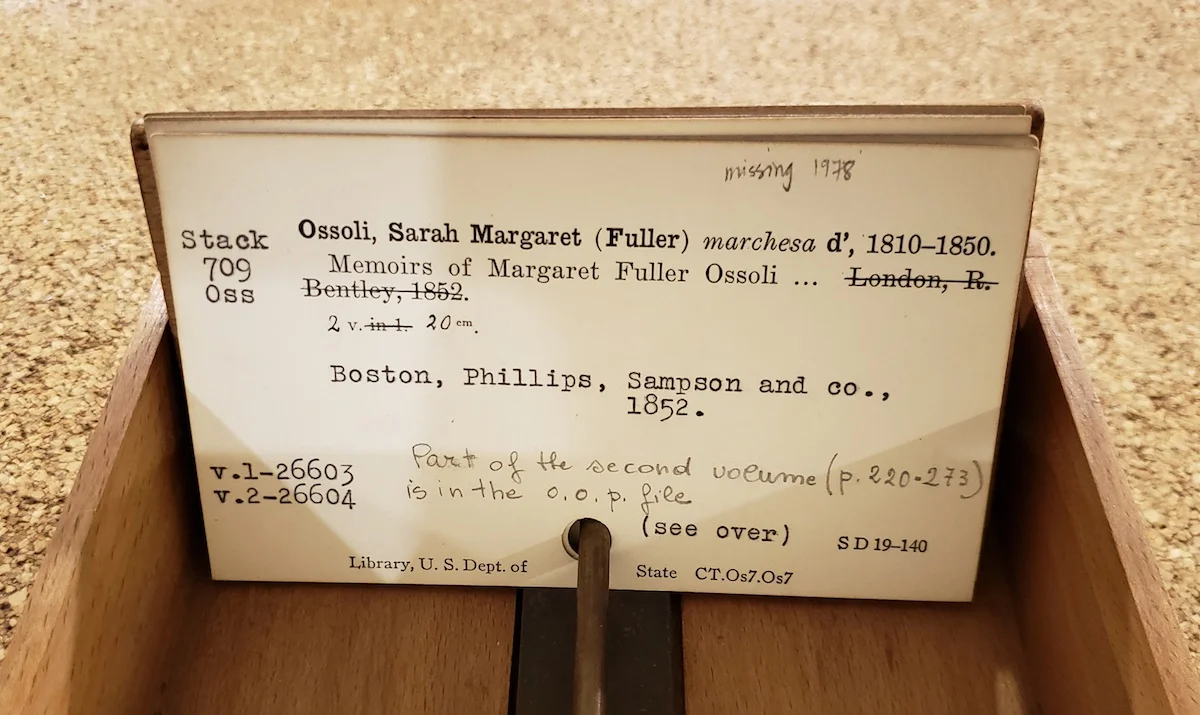 missing 1978
Stack Ossoli, Sarah Margaret (Fuller) marchesa d’, 1810–1850.
709 Memoirs of Margaret Fuller Ossoli ... London, R.
Oss Bentley, 1852.
2 v. in 1. 20 cm.
Boston, Phillips, Sampson and co.,
1852.
v.1-26603 Part of the second volume (p. 220-273)
v.2-26604 is in the o.o.p. file
(see over) S D 19–140
Library, U. S. Dept. of State CT.Os7.Os7